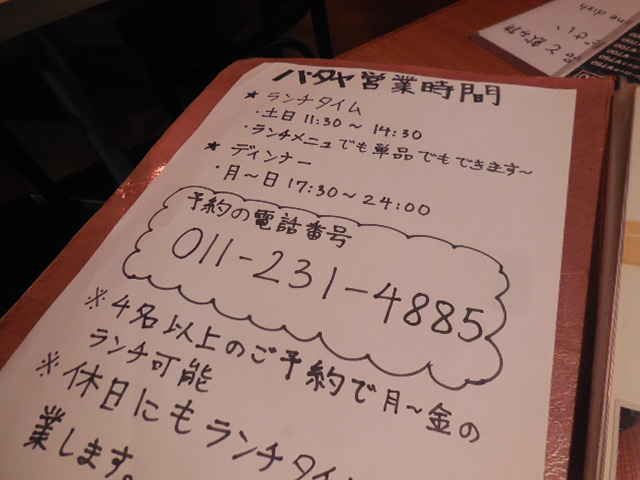 パタヤ営業時間
★ ランチタイム
・土日 11:30～14:30
・ランチメニュでも単品でもできます～
★ ディンナー
・月～日 17:30～24:00
予約の電話番号
011-231-4885
※4名以上のご予約で月～金の
ランチ可能
※休日にもランチタイ
業します。